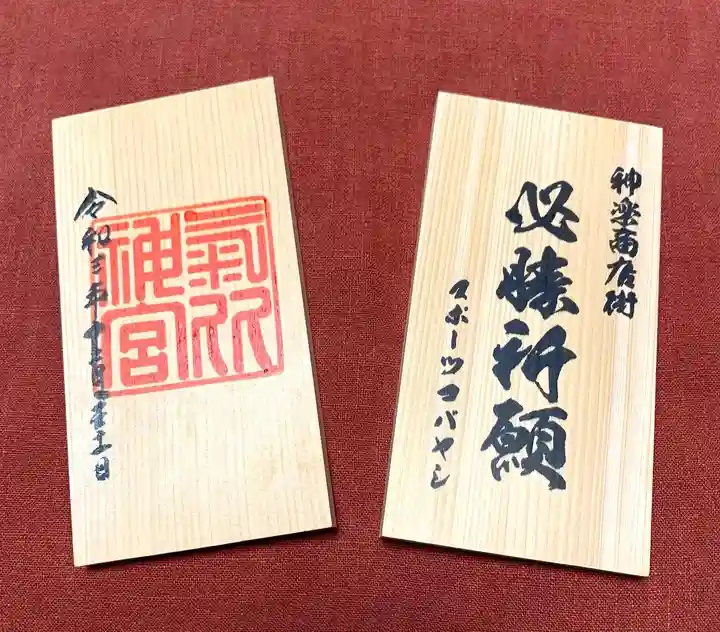 令和三年十二月 日
氣比
神宮
神楽商店街
必勝祈願
スポーツコバヤシ